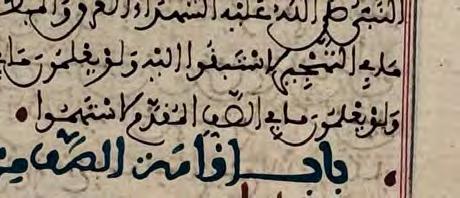 النبي صلى الله عليه الشهداء الغرق
ما في التهجير لاستبقوا اليه ولو يعلمون ما في
ولو يعلمون ما في الصف المقدم لاستهموا
باب اقامة الصف من